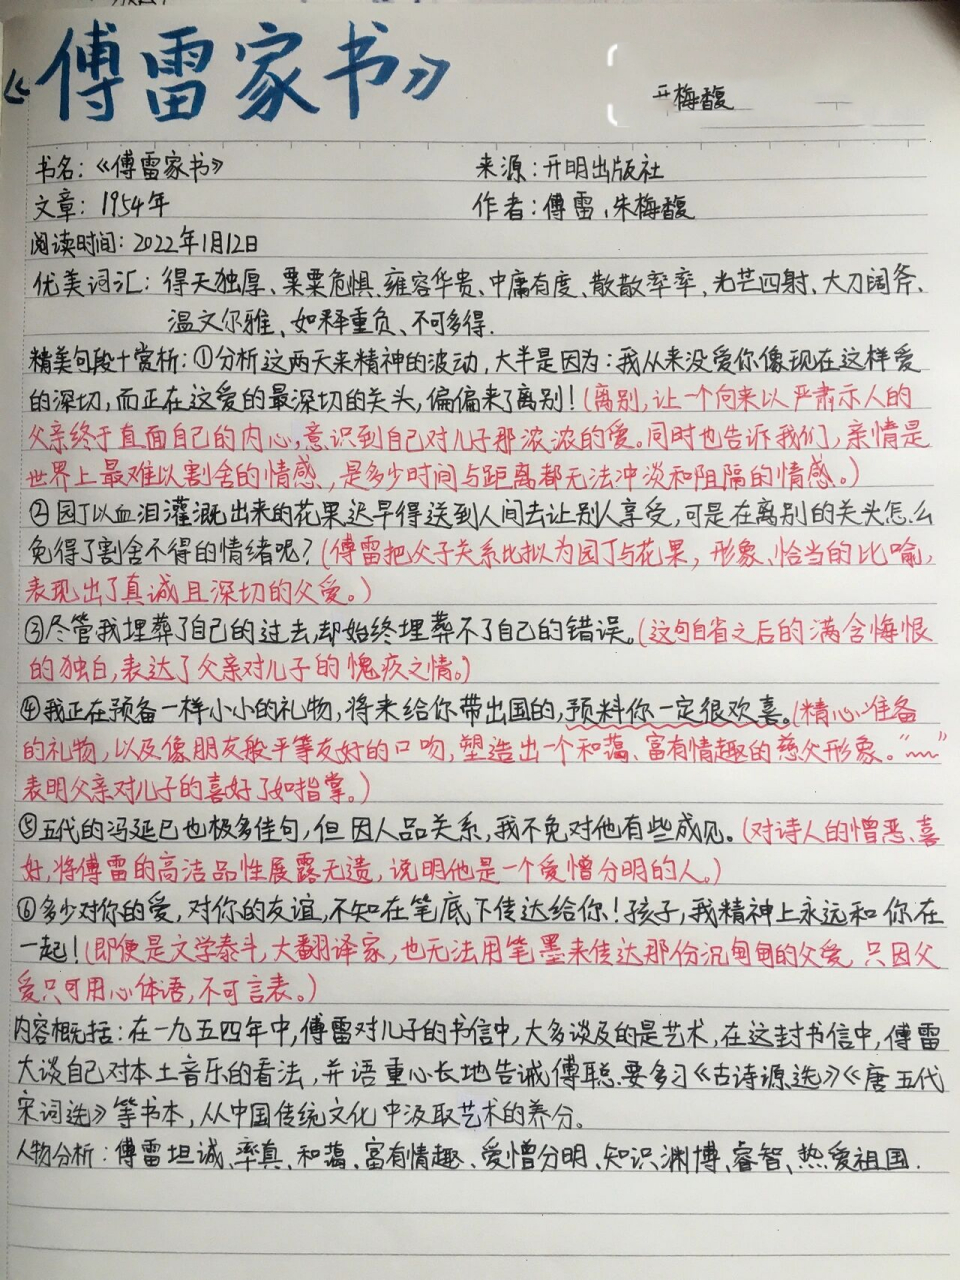 《傅雷家书》
梅馥
书名：《傅雷家书》 来源：开明出版社
文章：1954年 作者：傅雷、朱梅馥
阅读时间：2022年1月12日
优美词汇：得天独厚、栗栗危惧、雍容华贵、中庸有度、散散率率、光芒四射、大刀阔斧、
温文尔雅、如释重负、不可多得.
精美句段+赏析：①分析这两天来精神的波动，大半是因为：我从来没爱你像现在这样爱
的深切，而正在这爱的最深切的关头，偏偏来了离别！（离别，让一个向来以严肃示人的
父亲终于直面自己的内心，意识到自己对儿子那浓浓的爱。同时也告诉我们，亲情是
世界上最难以割舍的情感，是多少时间与距离都无法冲淡和阻隔的情感。）
②园丁以血泪灌溉出来的花果迟早得送到人间去让别人享受，可是在离别的关头怎么
免得了割舍不得的情绪呢？（傅雷把父子关系比拟为园丁与花果，形象、恰当的比喻，
表现出了真诚且深切的父爱。）
③尽管我埋葬了自己的过去，却始终埋葬不了自己的错误。（这句自省之后的满含悔恨
的独白，表达了父亲对儿子的愧疚之情。）
④我正在预备一样小小的礼物，将来给你带出国的，预料你一定很欢喜。（精心准备
的礼物，以及像朋友般平等友好的口吻，塑造出一个和蔼、富有情趣的慈父形象。“﹏”
表明父亲对儿子的喜好了如指掌。）
⑤五代的冯延巳也极多佳句，但因人品关系，我不免对他有些成见。（对诗人的憎恶、喜
好，将傅雷的高洁品性展露无遗，说明他是一个爱憎分明的人。）
⑥多少对你的爱，对你的友谊，不知在笔底下传达给你！孩子，我精神上永远和你在
一起！（即便是文学泰斗，大翻译家，也无法用笔墨来传达那份沉甸甸的父爱，只因父
爱只可用心体语，不可言表。）
内容概括：在一九五四年中，傅雷对儿子的书信中，大多谈及的是艺术，在这封书信中，傅雷
大谈自己对本土音乐的看法，并语重心长地告诫傅聪要多习《古诗源选》《唐五代
宋词选》等书本，从中国传统文化中汲取艺术的养分。
人物分析：傅雷坦诚、率真、和蔼、富有情趣、爱憎分明、知识渊博、睿智、热爱祖国.